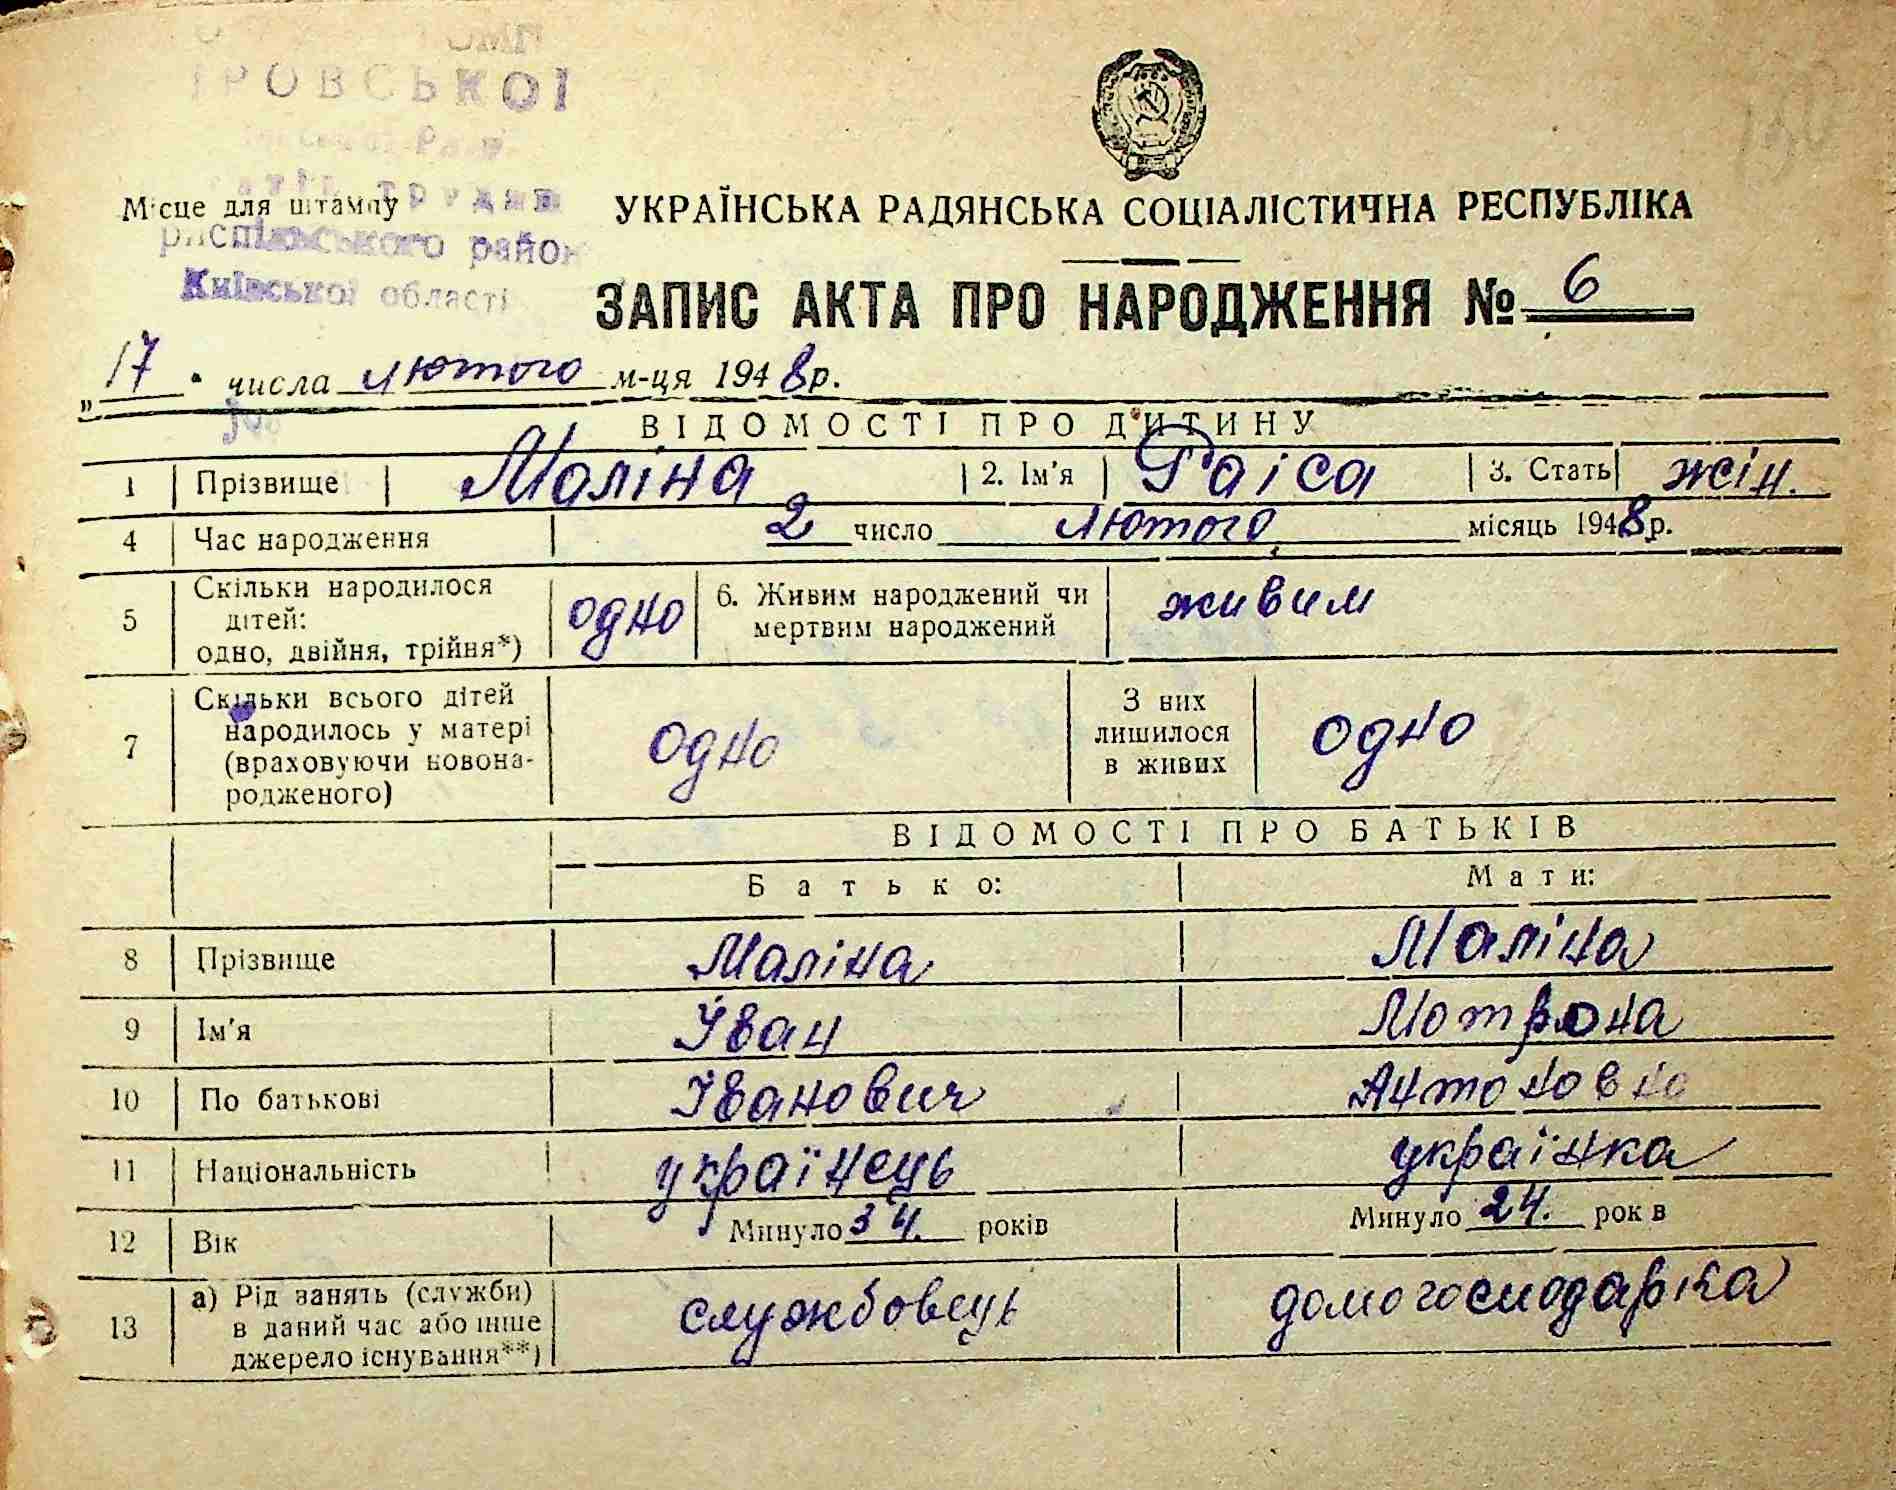 ІРОВСЬКОЇ
Місце для штампу
району
Київської області
УКРАЇНСЬКА РАДЯНСЬКА СОЦІАЛІСТИЧНА РЕСПУБЛІКА
ЗАПИС АКТА ПРО НАРОДЖЕННЯ № 6
„17" числа лютого м-ця 1948 р.
ВІДОМОСТІ ПРО ДИТИНУ
1 Прізвище Маліна 2. Ім'я Раїса 3. Стать жін.
4 Час народження 2 число лютого місяць 1948 р.
5 Скільки народилося дітей: одно, двійня, трійня*) одно 6. Живим народжений чи мертвим народжений живим
7 Скільки всього дітей народилось у матері (враховуючи новонародженого) одно З них лишилося в живих одно
ВІДОМОСТІ ПРО БАТЬКІВ
Батько: Мати:
8 Прізвище Маліна Маліна
9 Ім'я Іван Мотрона
10 По батькові Іванович Антоновна
11 Національність українець українка
12 Вік Минуло 34. років Минуло 24. років
13 а) Рід занять (служби) в даний час або інше джерело існування**) службовець домогосподарка